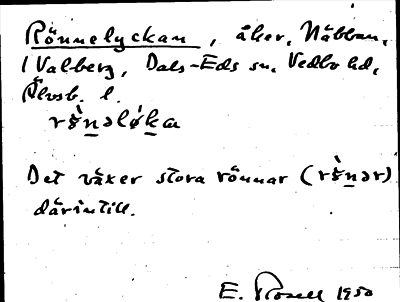 Rönnelyckan, åker, Näbban,
1 Valberg, Dals-Eds sn. Vedbo hd,
Älvsb. l.
Det växer stora rönnar (rŏ̀nər)
därintill.
E. Rosell 1950